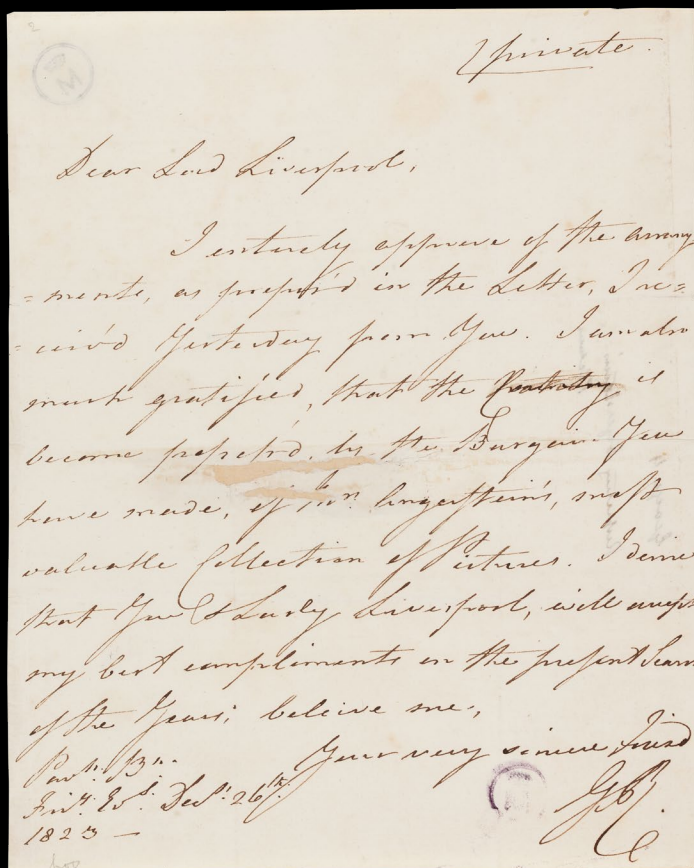 private.
Dear Lord Liverpool,
I entirely approve of the arrang
=ments, as propos'd in the Letter, I re=
=ceiv'd Yesterday from You. I am also
much gratified, that the Country is
become possess'd, by the Bargain You
have made, of Mr. Angerstein's, most
valuable Collection of Pictures. I desire
that You & Lady Liverpool, will accept
my best compliments on the present Season
of the Year; beleive me,
Your very sincere friend
G R.
Pavn. Bn.
Friy. Evg. Decr. 26th.
1823 —
M